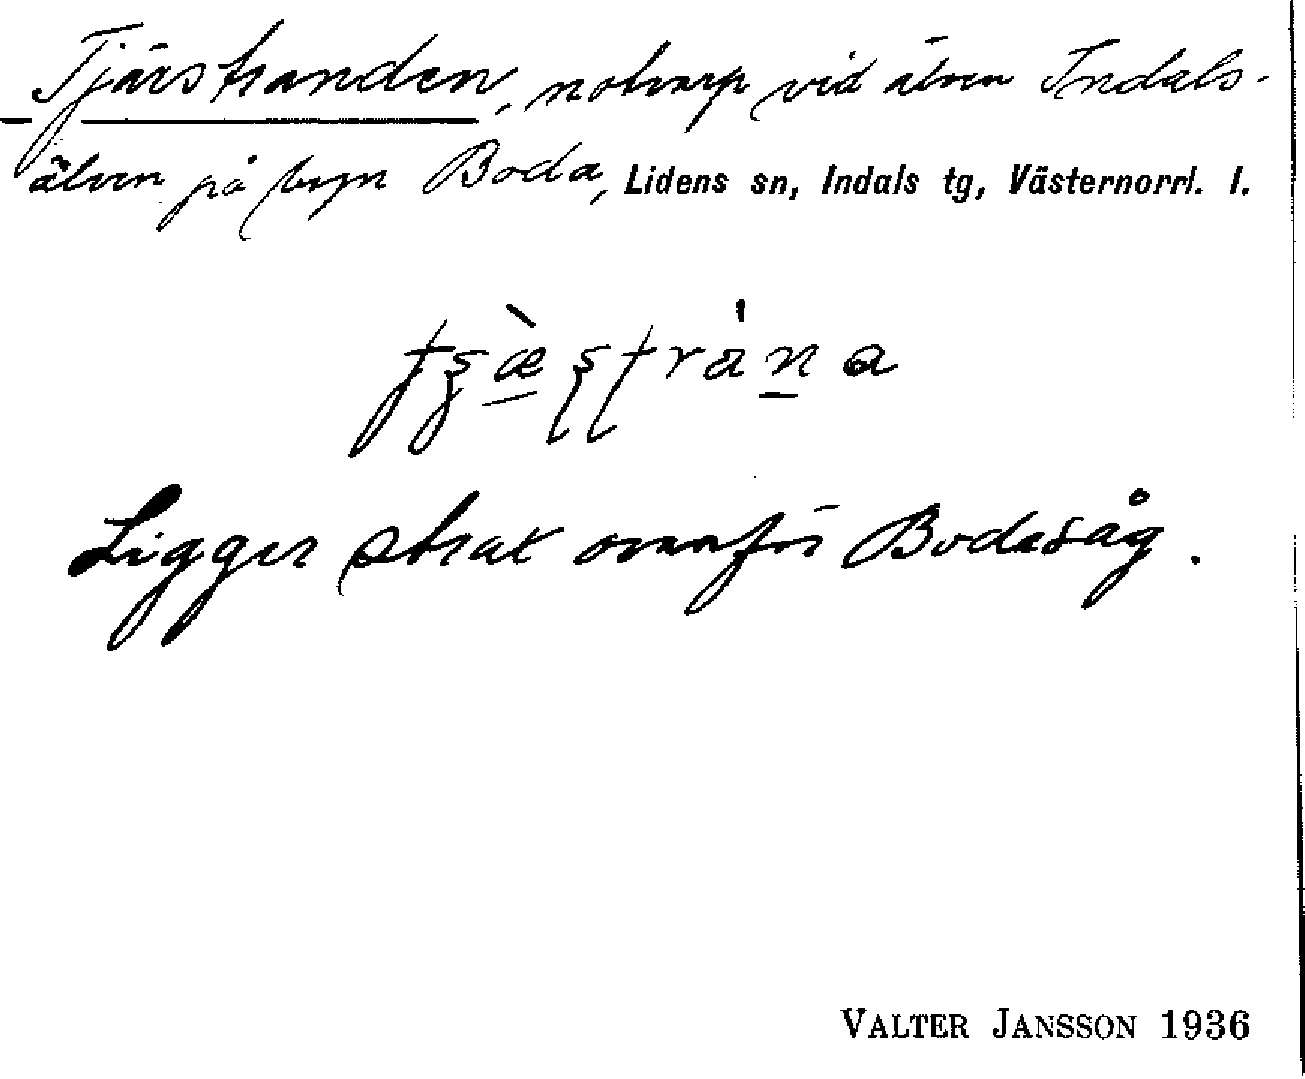 Tjärstranden, notvarp vid älven Indals-
älven på byn Boda, Lidens sn, Indals tg, Västernorrl. l.
Ligger strax ovanför Bodasåg.
VALTER JANSSON 1936